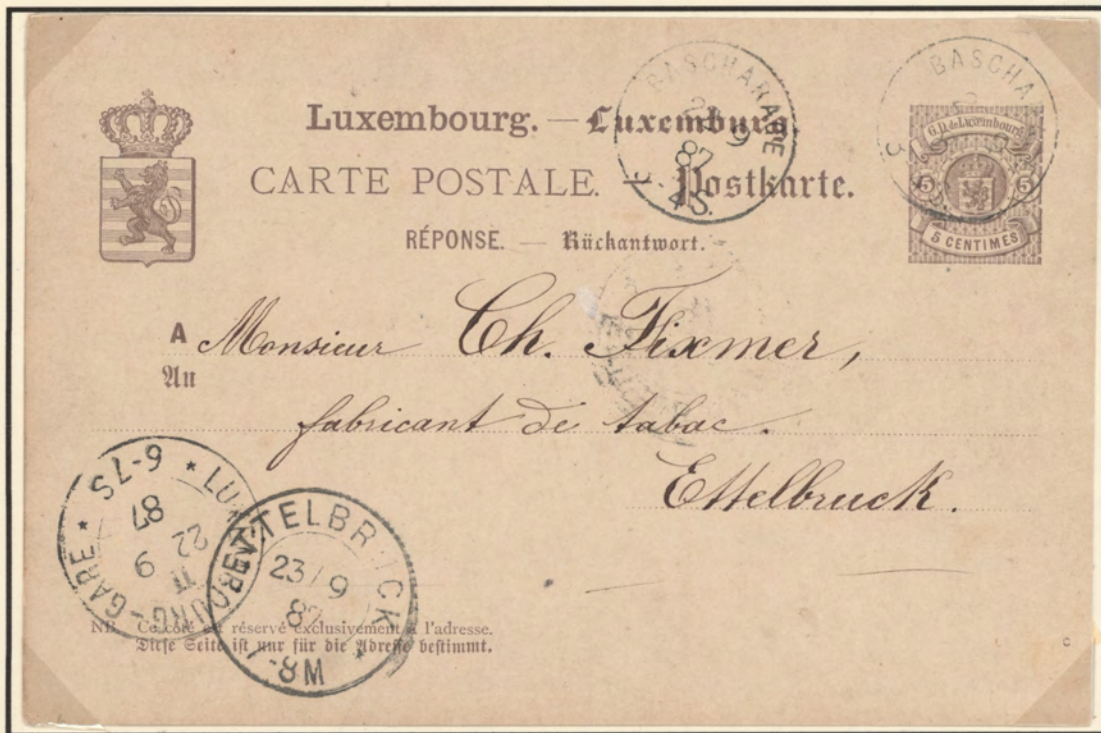 Luxembourg. — Luxemburg.
CARTE POSTALE. — Postkarte.
RÉPONSE. — Rückantwort.
BASCHARAGE
22 9
87
3-4S.
BASCHA
3
G.D. de Luxembourg
5 5
5 CENTIMES
A Monsieur Ch. Fixmer,
An
fabricant de tabac.
Ettelbruck.
LUXEMBOURG-GARE * 6-7S *
22 9
87
II
ETTELBRUCK *
23/9
87
7-8M
NB. Ce côté est réservé exclusivement à l'adresse.
Diese Seite ist nur für die Adresse bestimmt.
c